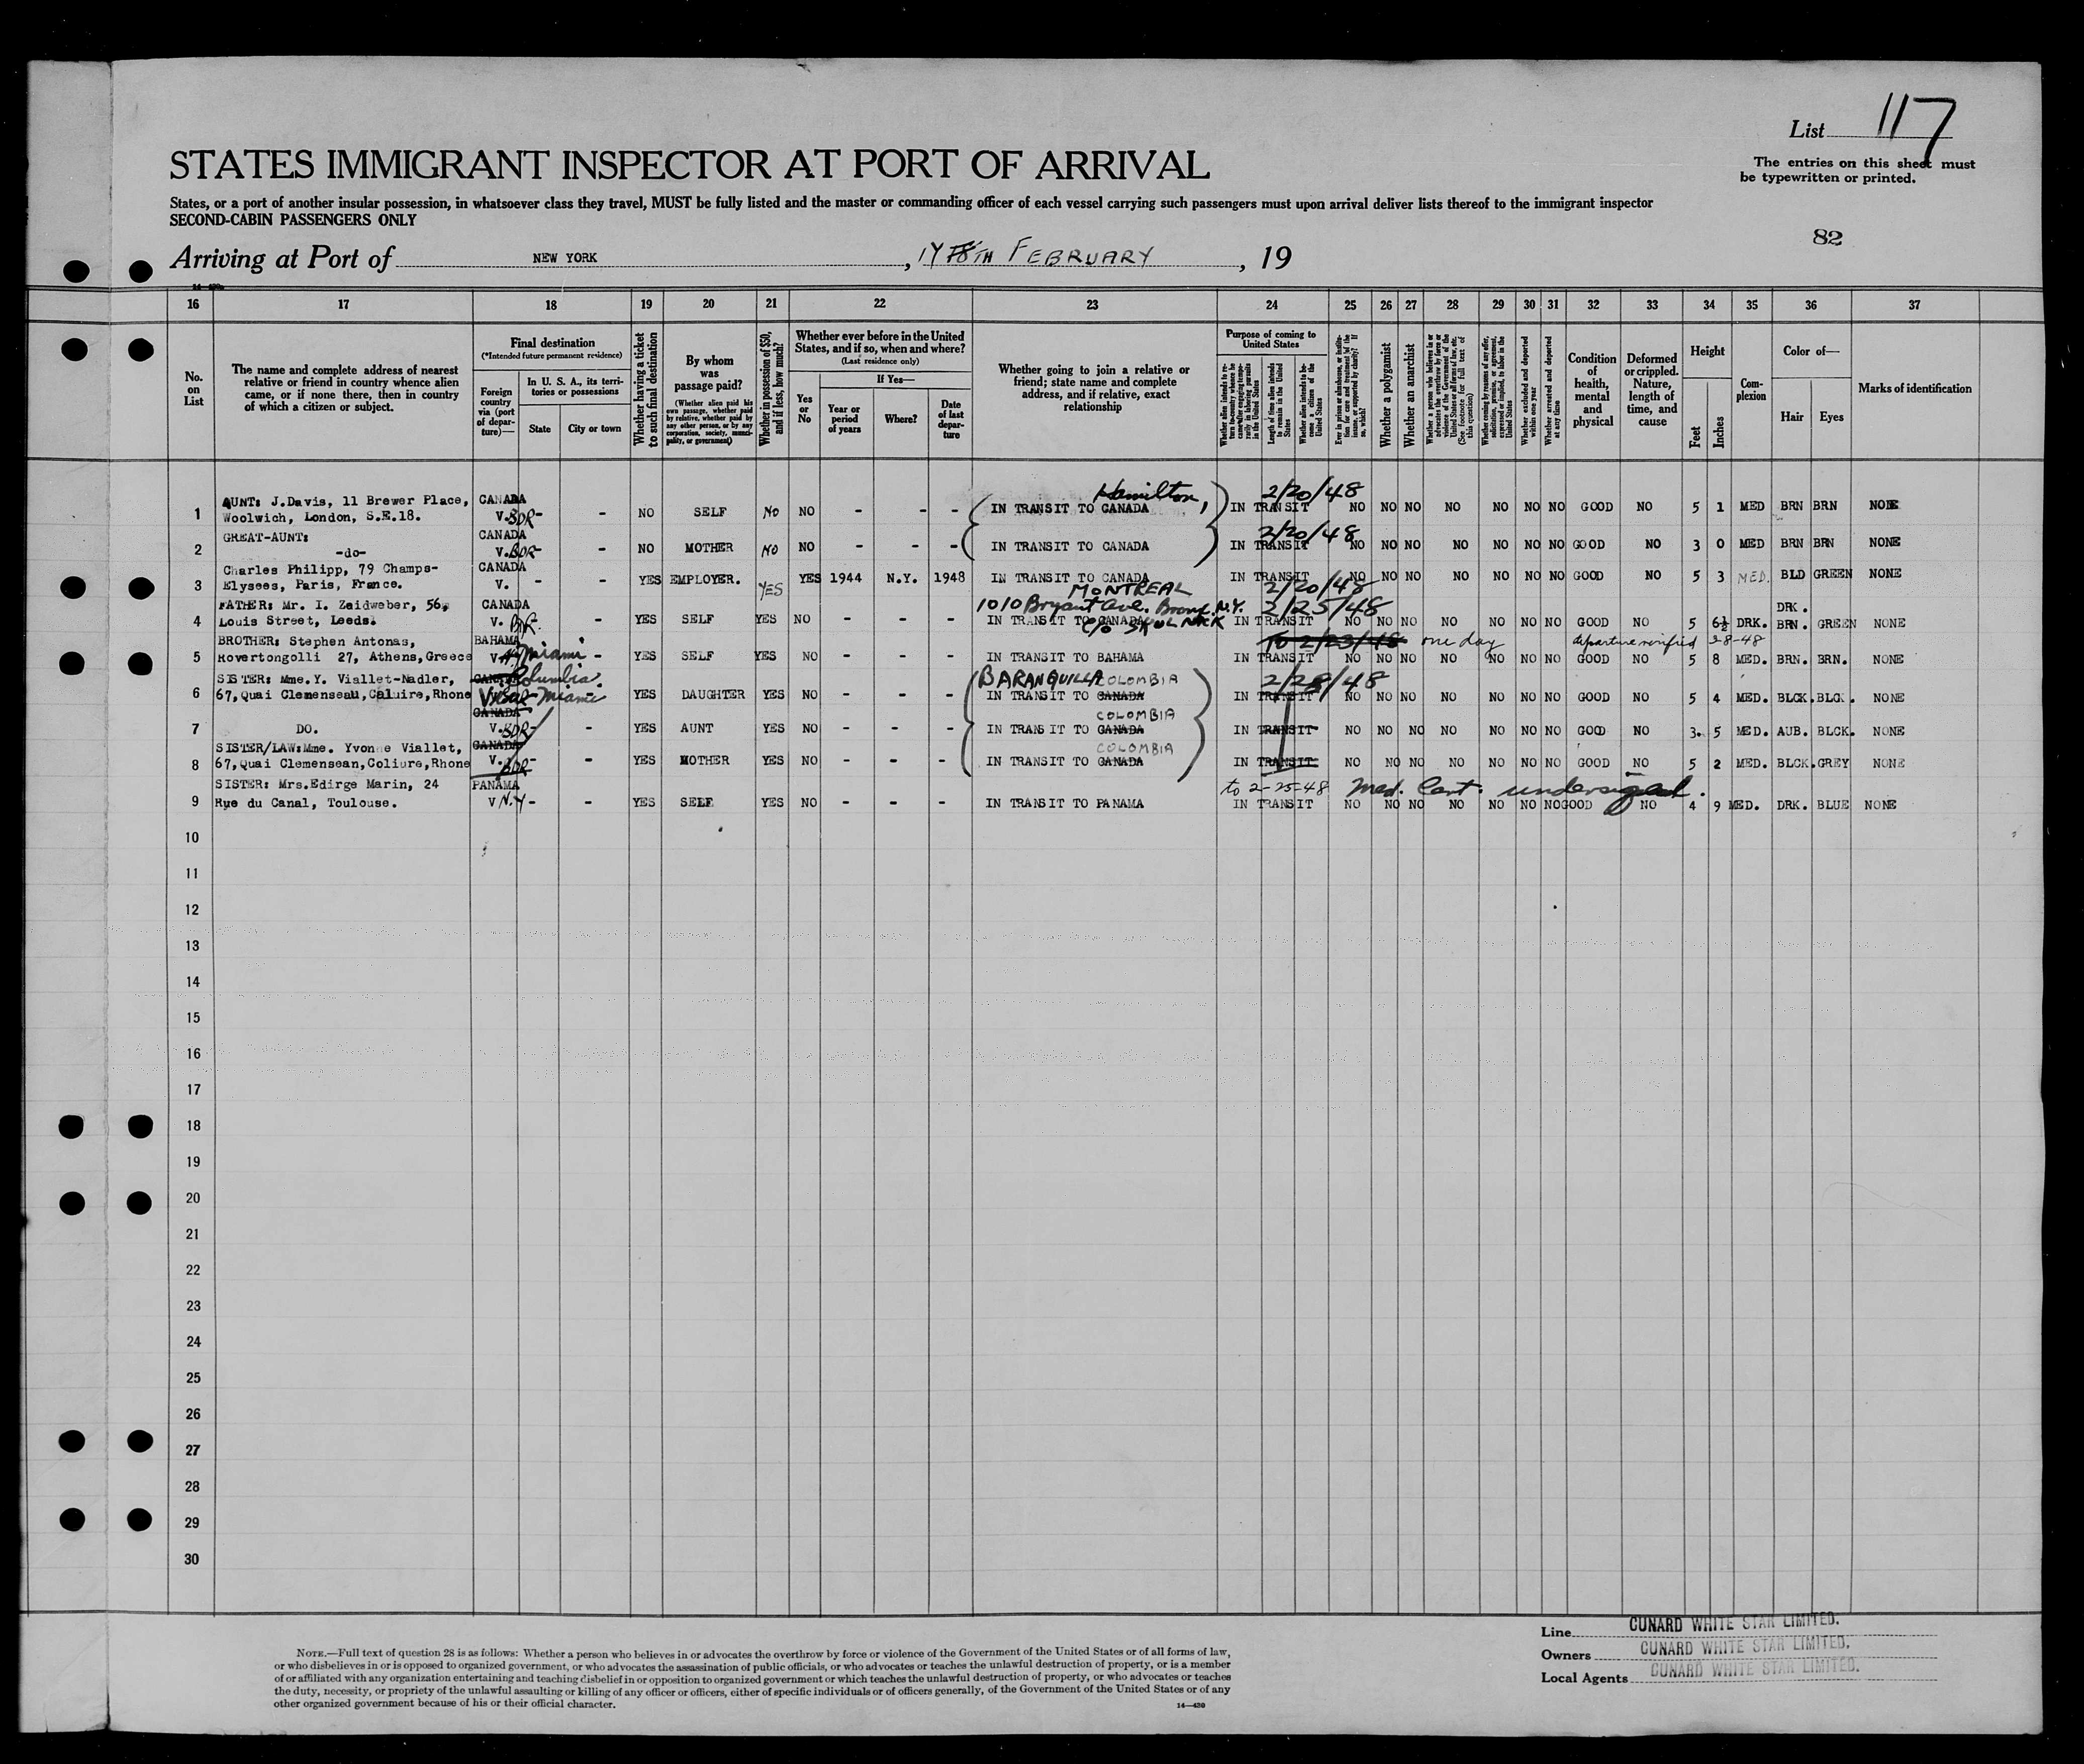 List 117
STATES IMMIGRANT INSPECTOR AT PORT OF ARRIVAL
The entries on this sheet must
be typewritten or printed.
States, or a port of another insular possession, in whatsoever class they travel, MUST be fully listed and the master or commanding officer of each vessel carrying such passengers must upon arrival deliver lists thereof to the immigrant inspector
SECOND-CABIN PASSENGERS ONLY
82
Arriving at Port of NEW YORK, FEBRUARY, 19
16 17 18 19 20 21 22 23 24 25 26 27 28 29 30 31 32 33 34 35 36 37
No. on List
The name and complete address of nearest relative or friend in country whence alien came, or if none there, then in country of which a citizen or subject.
Final destination
(*Intended future permanent residence)
Foreign country via (port of departure)—
In U. S. A., its territories or possessions
State
City or town
Whether having a ticket to such final destination
By whom was passage paid?
(Whether alien paid his own passage, whether paid by relative, whether paid by any other person, or by any corporation, society, municipality, or government)
Whether in possession of $50, and if less, how much?
Whether ever before in the United States, and if so, when and where?
(Last residence only)
Yes or No
If Yes—
Year or period of years
Where?
Date of last departure
Whether going to join a relative or friend; state name and complete address, and if relative, exact relationship
Purpose of coming to United States
Length of time alien intends to remain in the United States
Whether alien intends to become a citizen of the United States
Whether a polygamist
Whether an anarchist
Whether excluded and deported within one year
Whether arrested and deported at any time
Condition of health, mental and physical
Deformed or crippled. Nature, length of time, and cause
Height
Feet
Inches
Complexion
Color of—
Hair
Eyes
Marks of identification
Hamilton, 2/20/48
1 AUNT: J.Davis, 11 Brewer Place, Woolwich, London, S.E.18. CANADA V. BDR - - NO SELF NO NO - - - IN TRANSIT TO CANADA IN TRANSIT NO NO NO NO NO NO NO GOOD NO 5 1 MED BRN BRN NONE
2/20/48
2 GREAT-AUNT: -do- CANADA V. BDR - - NO MOTHER NO NO - - - IN TRANSIT TO CANADA IN TRANSIT NO NO NO NO NO NO NO GOOD NO 3 0 MED BRN BRN NONE
3 Charles Philipp, 79 Champs-Elysees, Paris, France. CANADA V. - - YES EMPLOYER. YES YES 1944 N.Y. 1948 IN TRANSIT TO CANADA IN TRANSIT NO NO NO NO NO NO NO GOOD NO 5 3 MED. BLD GREEN NONE
MONTREAL 2/20/48
1010 Bryant Ave. Bronx, N.Y. 2/25/48
4 FATHER: Mr. I. Zaidweber, 56, Louis Street, Leeds. CANADA V. BDR. - YES SELF YES NO - - - IN TRANSIT TO CANADA IN TRANSIT NO NO NO NO NO NO NO GOOD NO 5 6½ DRK. DRK. BRN. GREEN NONE
c/o SKULNICK
To 2/23/48 one day departure verified 3-8-48
5 BROTHER: Stephen Antonas, Rovertongolli 27, Athens,Greece BAHAMA V. Miami - YES SELF YES NO - - - IN TRANSIT TO BAHAMA IN TRANSIT NO NO NO NO NO NO NO GOOD NO 5 8 MED. BRN. BRN. NONE
BARANQUILLA COLOMBIA 2/28/48
6 SISTER: Mme.Y. Viallet-Nadler, 67,Quai Clemenseau,Caluire,Rhone CANADA Columbia. V. BDR Miami - YES DAUGHTER YES NO - - - IN TRANSIT TO CANADA IN TRANSIT NO NO NO NO NO NO NO GOOD NO 5 4 MED. BLCK. BLCK. NONE
COLOMBIA
7 DO. CANADA V. BDR - - YES AUNT YES NO - - - IN TRANSIT TO CANADA IN TRANSIT NO NO NO NO NO NO NO GOOD NO 3. 5 MED. AUB. BLCK. NONE
COLOMBIA
8 SISTER/LAW:Mme. Yvonne Viallet, 67,Quai Clemensean,Coliure,Rhone CANADA V. BDR - - YES MOTHER YES NO - - - IN TRANSIT TO CANADA IN TRANSIT NO NO NO NO NO NO NO GOOD NO 5 2 MED. BLCK. GREY NONE
to 2-25-48 Med. Cert. undersigned.
9 SISTER: Mrs.Edirge Marin, 24 Rue du Canal, Toulouse. PANAMA V N.Y - - YES SELF YES NO - - - IN TRANSIT TO PANAMA IN TRANSIT NO NO NO NO NO NO NO GOOD NO 4 9 MED. DRK. BLUE NONE
10
11
12
13
14
15
16
17
18
19
20
21
22
23
24
25
26
27
28
29
30
Line CUNARD WHITE STAR LIMITED.
Owners CUNARD WHITE STAR LIMITED.
Local Agents CUNARD WHITE STAR LIMITED.
NOTE.—Full text of question 28 is as follows: Whether a person who believes in or advocates the overthrow by force or violence of the Government of the United States or of all forms of law,
or who disbelieves in or is opposed to organized government, or who advocates the assassination of public officials, or who advocates or teaches the unlawful destruction of property, or is a member
of or affiliated with any organization entertaining and teaching disbelief in or opposition to organized government or which teaches the unlawful destruction of property, or who advocates or teaches
the duty, necessity, or propriety of the unlawful assaulting or killing of any officer or officers, either of specific individuals or of officers generally, of the Government of the United States or of any
other organized government because of his or their official character.
14—430